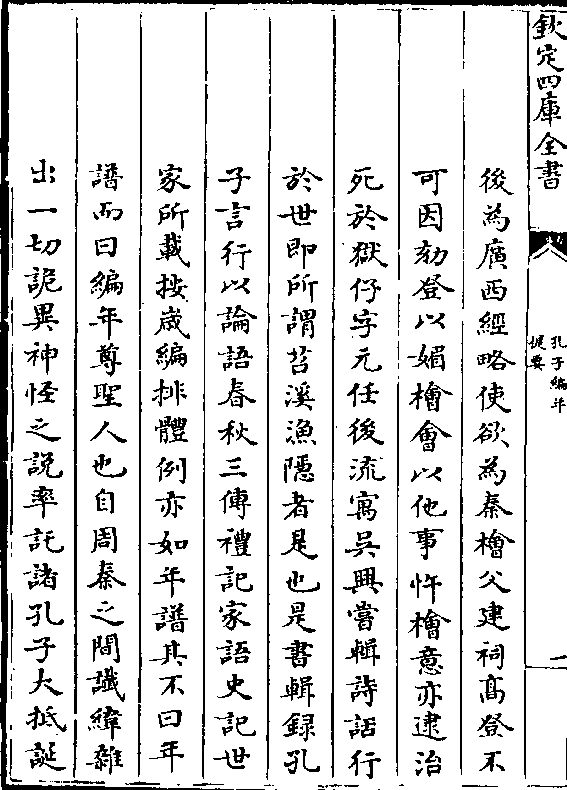 欽定四庫全書
孔子編年
提要
一
後為廣西經略使欲為秦檜父建祠髙登不
可因劾登以媚檜會以他事忤檜意亦逮治
死於獄仔字元任後流寓吳興嘗輯詩話行
於世即所謂苕溪漁隱者是也是書輯録孔
子言行以論語春秋三傳禮記家語史記世
家所載按歳編排體例亦如年譜其不曰年
譜而曰編年尊聖人也自周秦之間讖緯雜
出一切詭異神怪之說率託諸孔子大抵誕